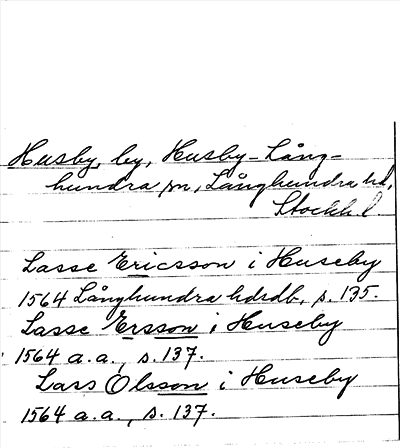 Husby, by, Husby-Lång-
hundra sn, Långhundra hd,
Stockh. l.
Lasse Ericsson i Huseby
1564 Långhundra hdrdb, s. 135.
Lasse Ersson i Huseby
1564 a.a., s. 137.
Lars Olsson i Huseby
1564 a.a., s. 137.